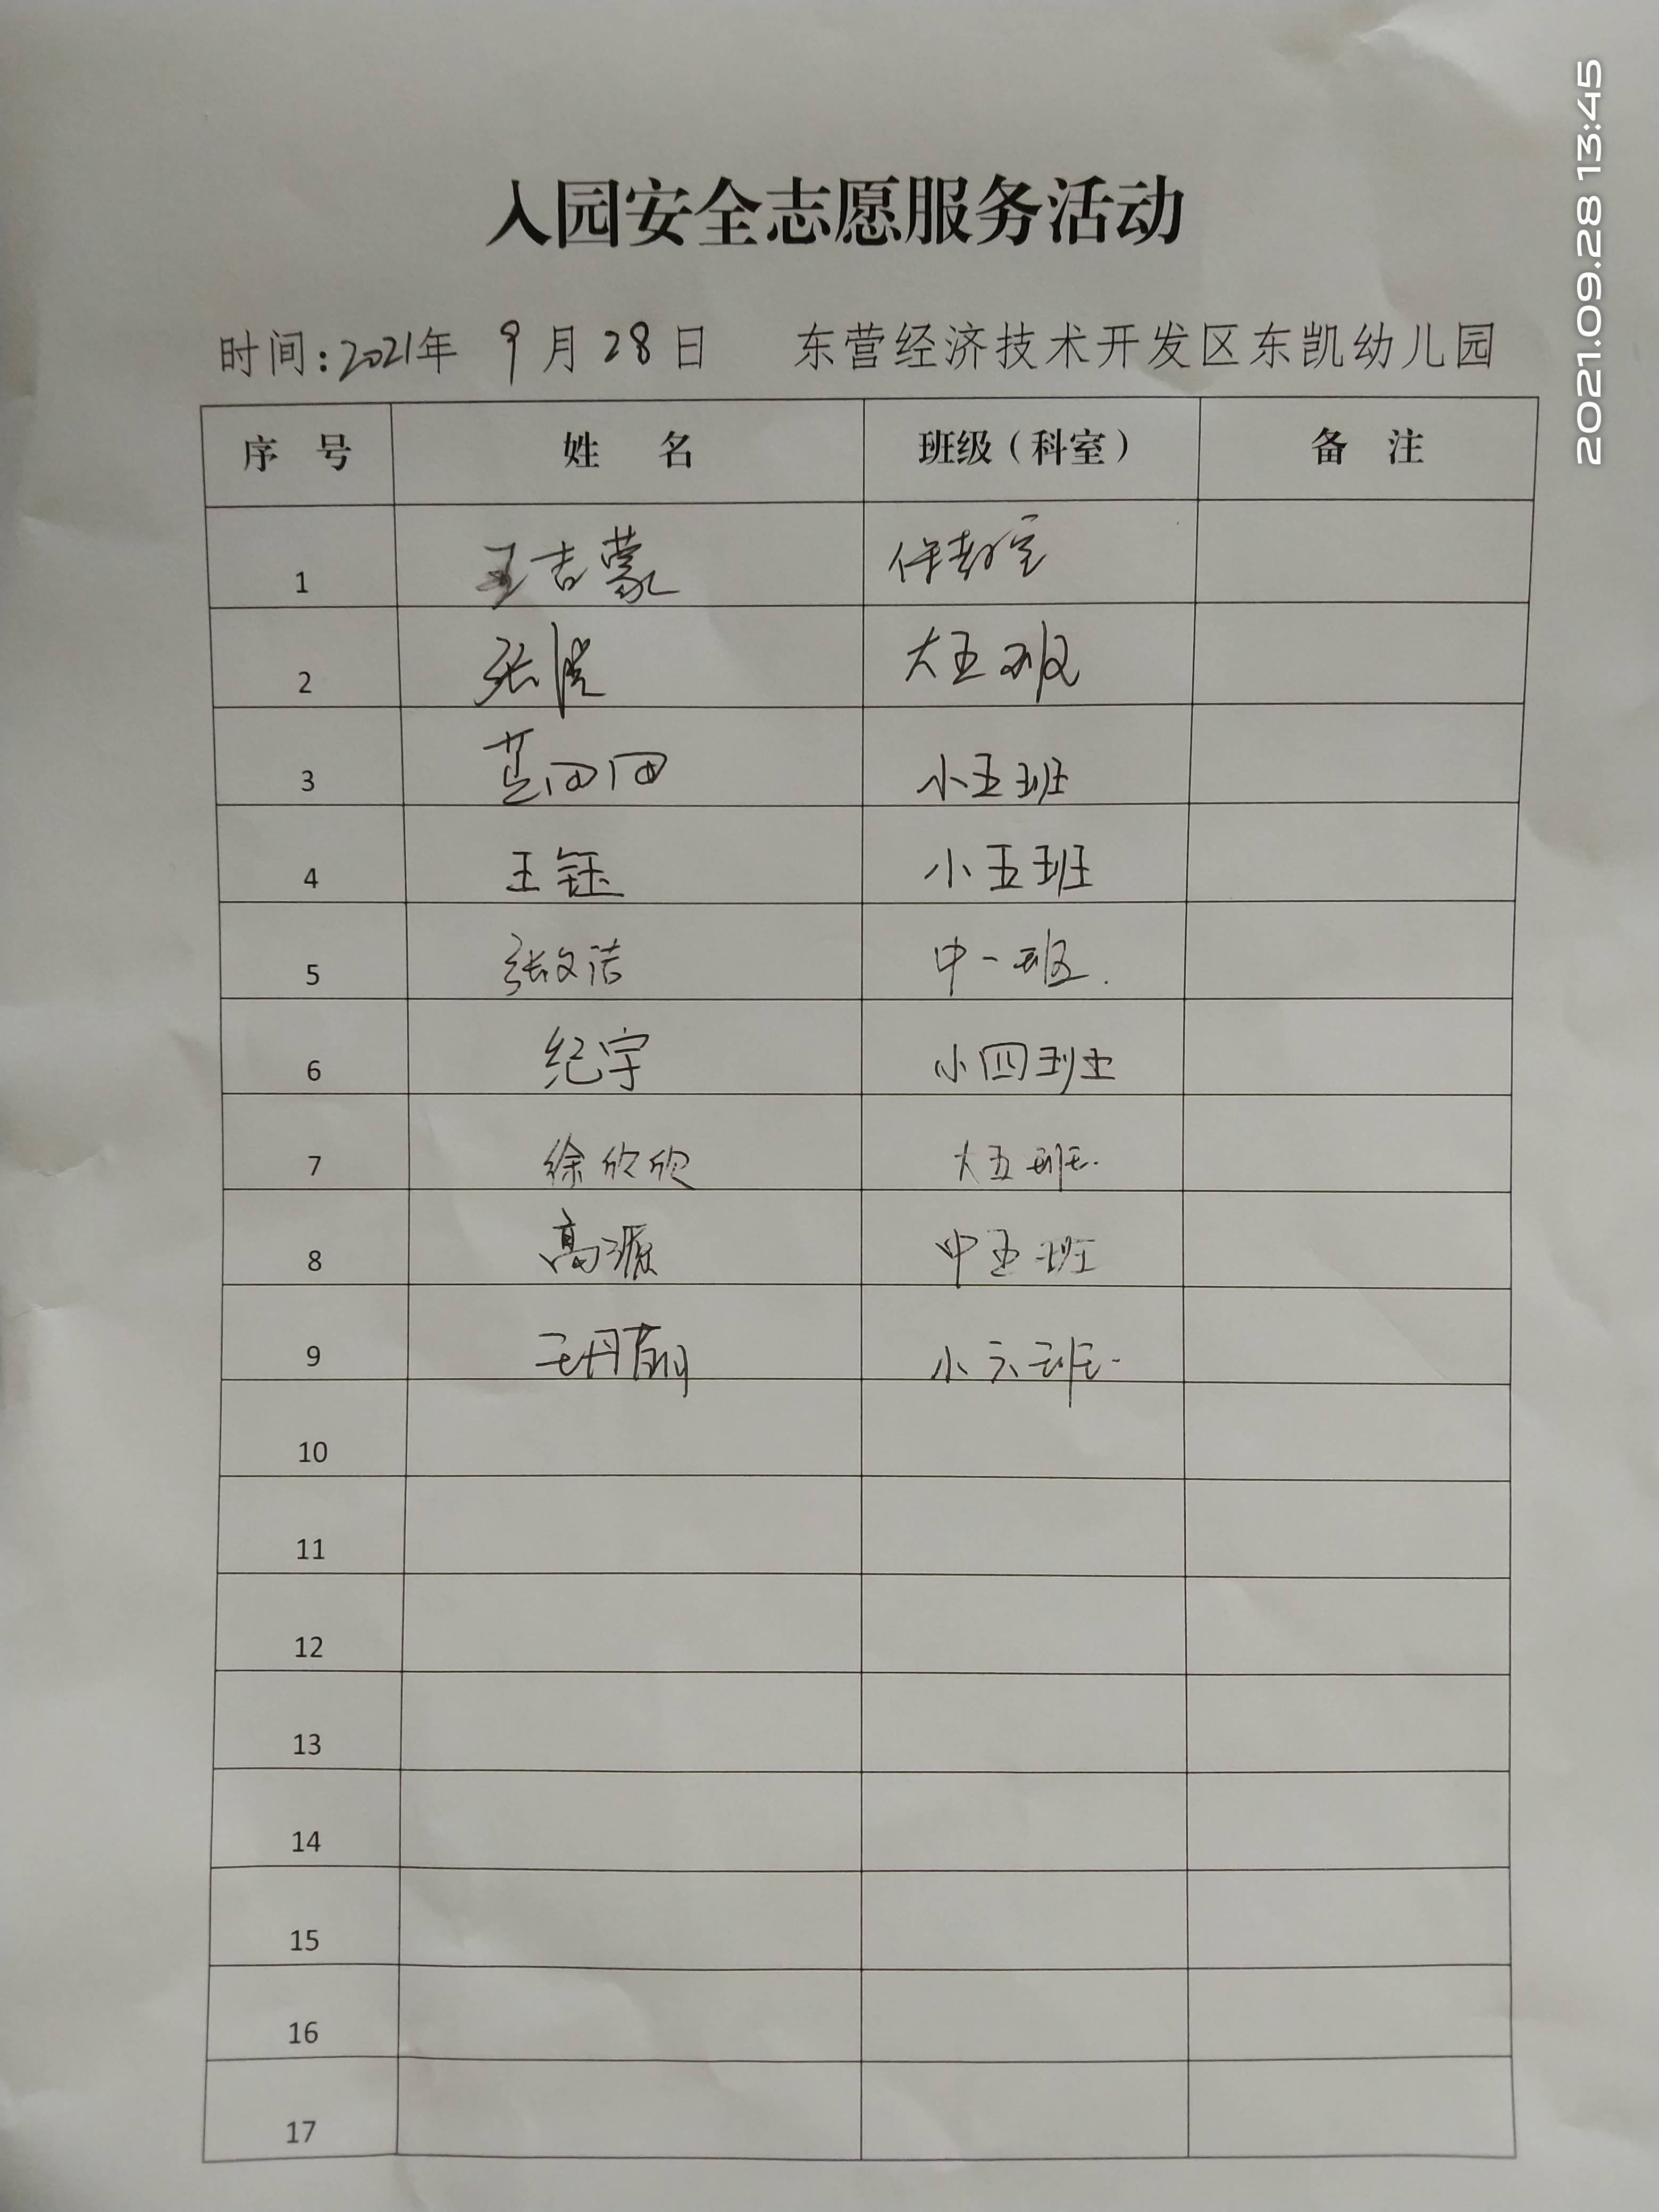 2021.09.28 13:45
入园安全志愿服务活动
时间:2021年 9月28日 东营经济技术开发区东凯幼儿园
序 号 姓 名 班级(科室) 备 注
1 王吉蒙 保教室
2 张 大五班
3 小五班
4 王钰 小五班
5 张文洁 中一班.
6 纪宇 小四班
7 徐欣欣 大五班.
8 高源 中五班
9 王丹 小六班.
10
11
12
13
14
15
16
17